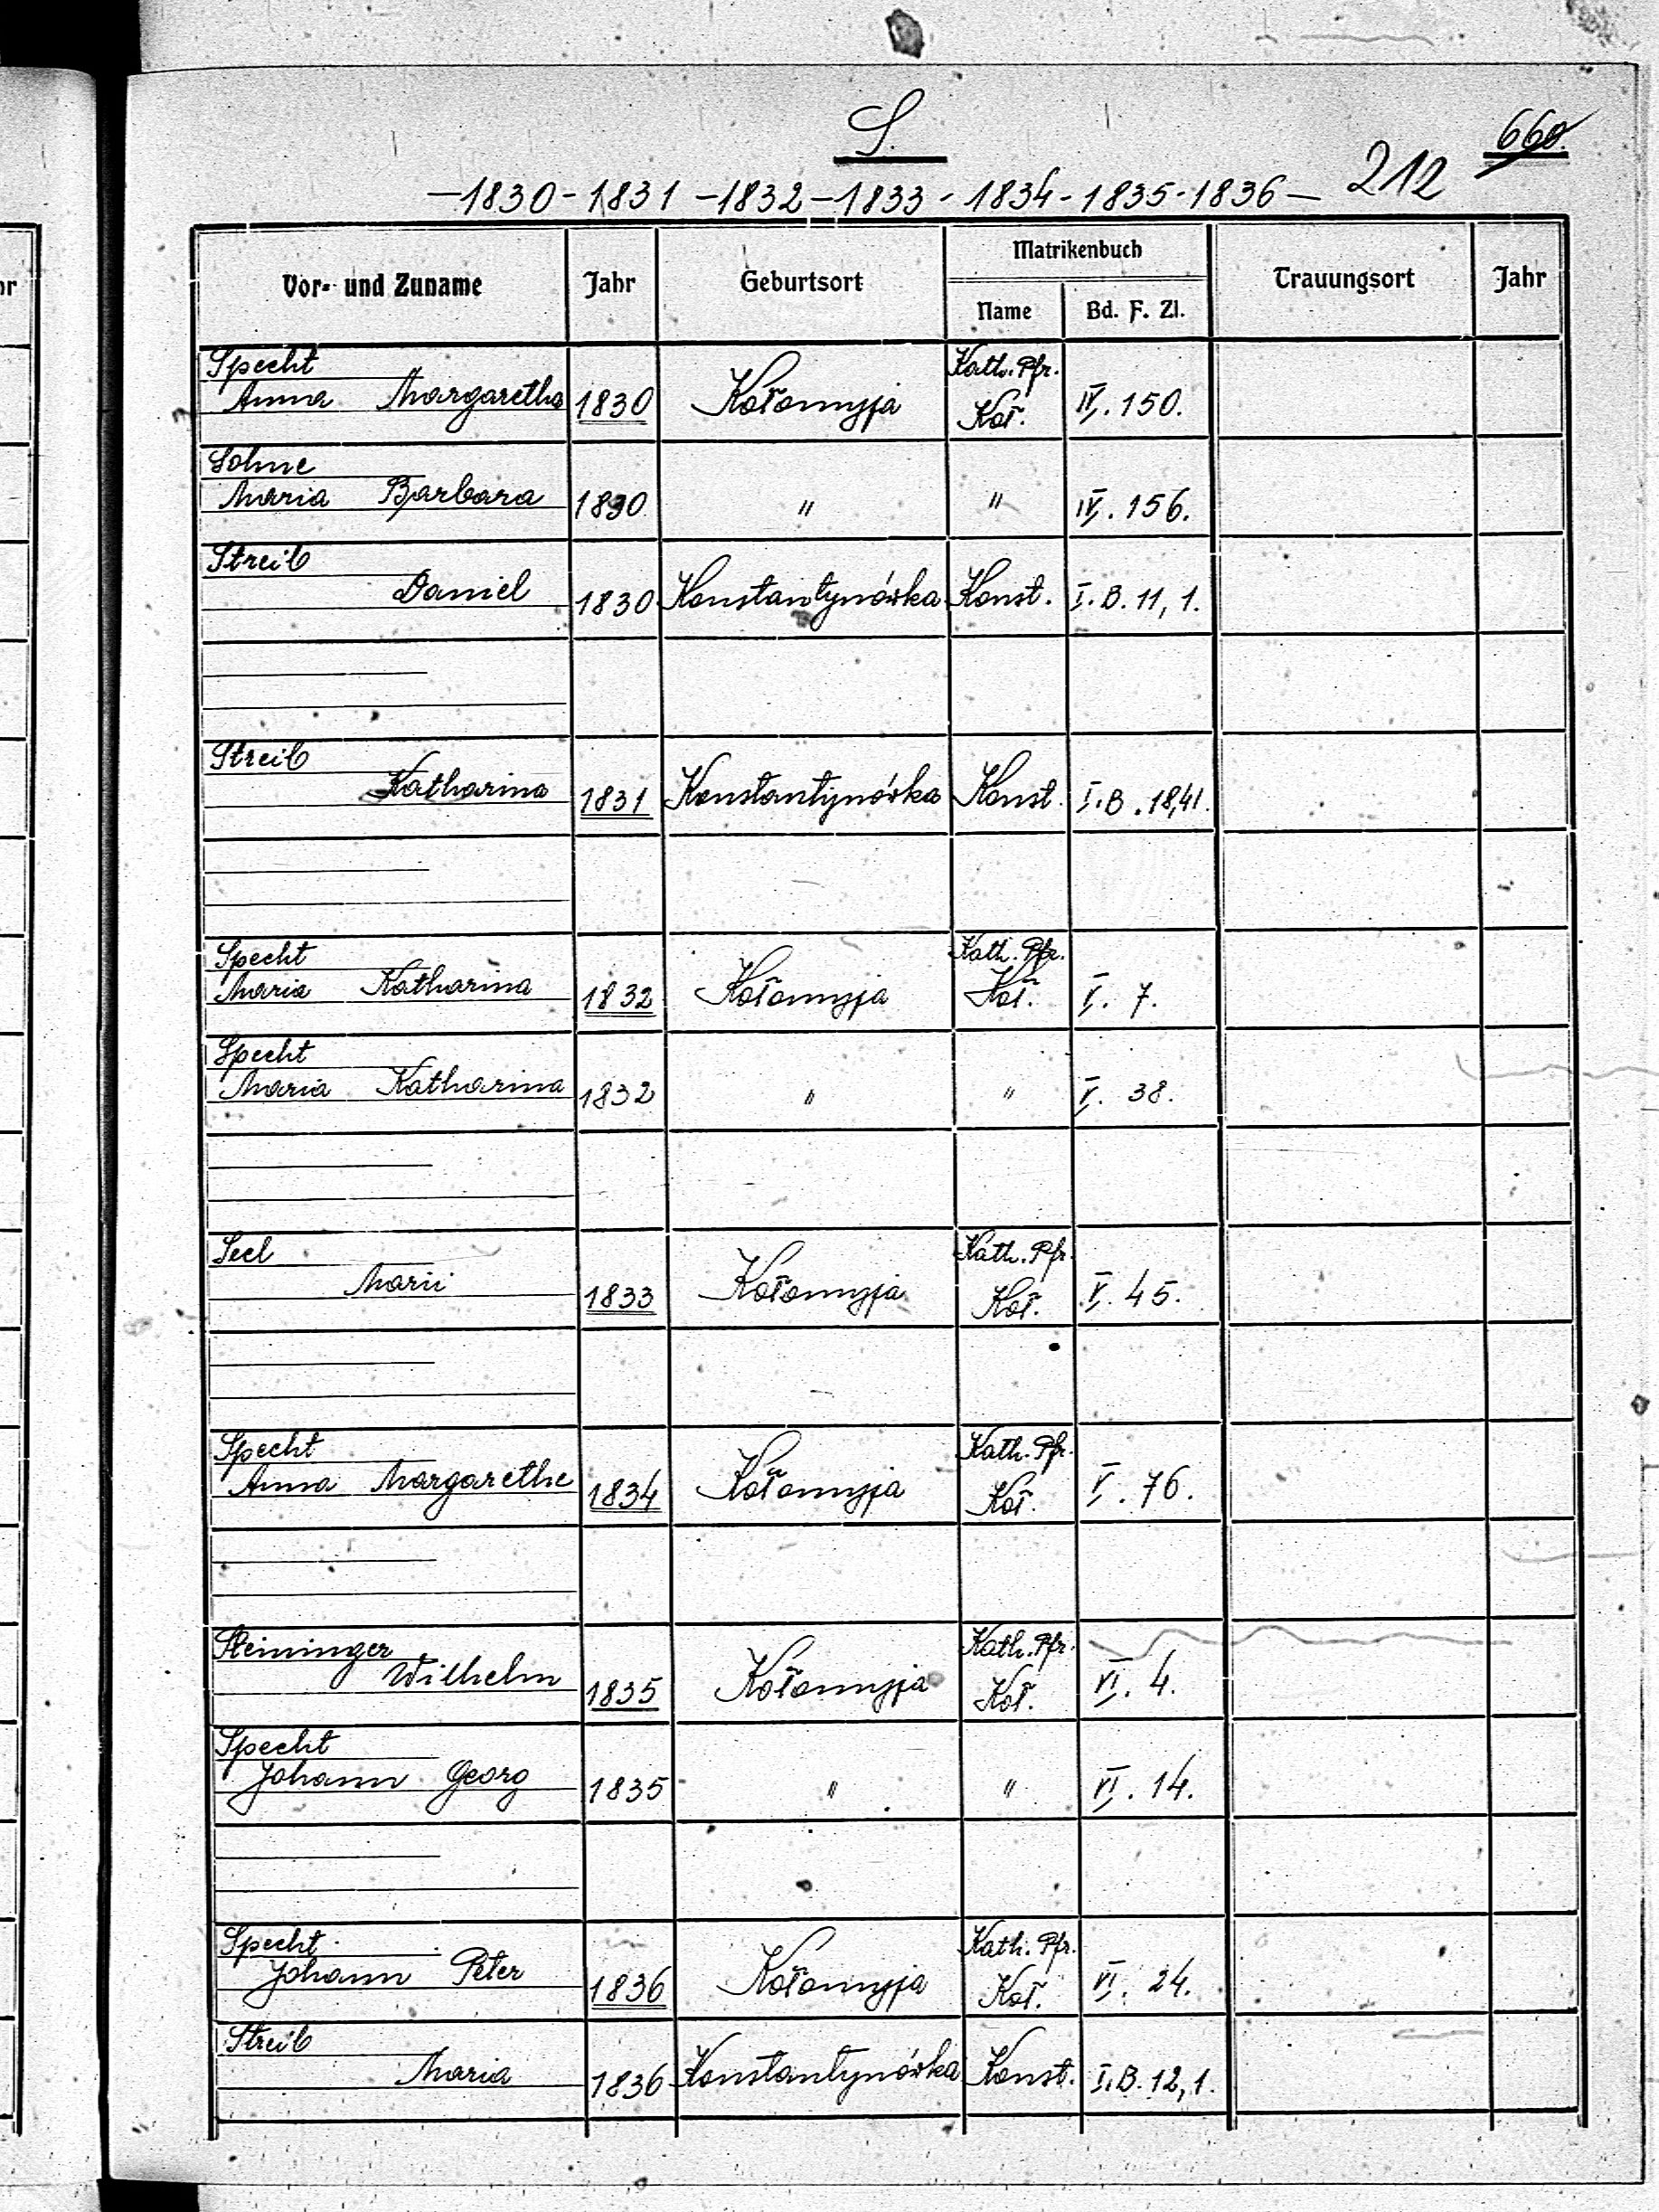 S.
660.
212
-1830-1831-1832-1833-1834-1835-1836-
Vor- und Zuname Jahr Geburtsort Matrikenbuch Trauungsort Jahr
Name Bd. F. Zl.
Specht Kath. Pfr.
Anna Margaretha 1830 Kołomyja Koł. IV. 150.
Sohne
Maria Barbara 1830 " " IV. 156.
Streib
Daniel 1830 Konstantynówka Konst. I. B. 11, 1.
Streib
Katharina 1831 Konstantynówka Konst. I. B. 18,41.
Specht Kath. Pfr.
Maria Katharina 1832 Kołomyja Koł. V. 7.
Specht
Maria Katharina 1832 " " V. 38.
Seel Kath. Pfr.
Marii 1833 Kołomyja Koł. V. 45.
Specht Kath. Pfr.
Anna Margarethe 1834 Kołomyja Koł. V. 76.
Steininger Kath. Pfr.
Wilhelm 1835 Kołomyja Koł. VI. 4.
Specht
Johann Georg 1835 " " VI. 14.
Specht Kath. Pfr.
Johann Peter 1836 Kołomyja Koł. VI. 24.
Streib
Maria 1836 Konstantynówka Konst. I. B. 12, 1.